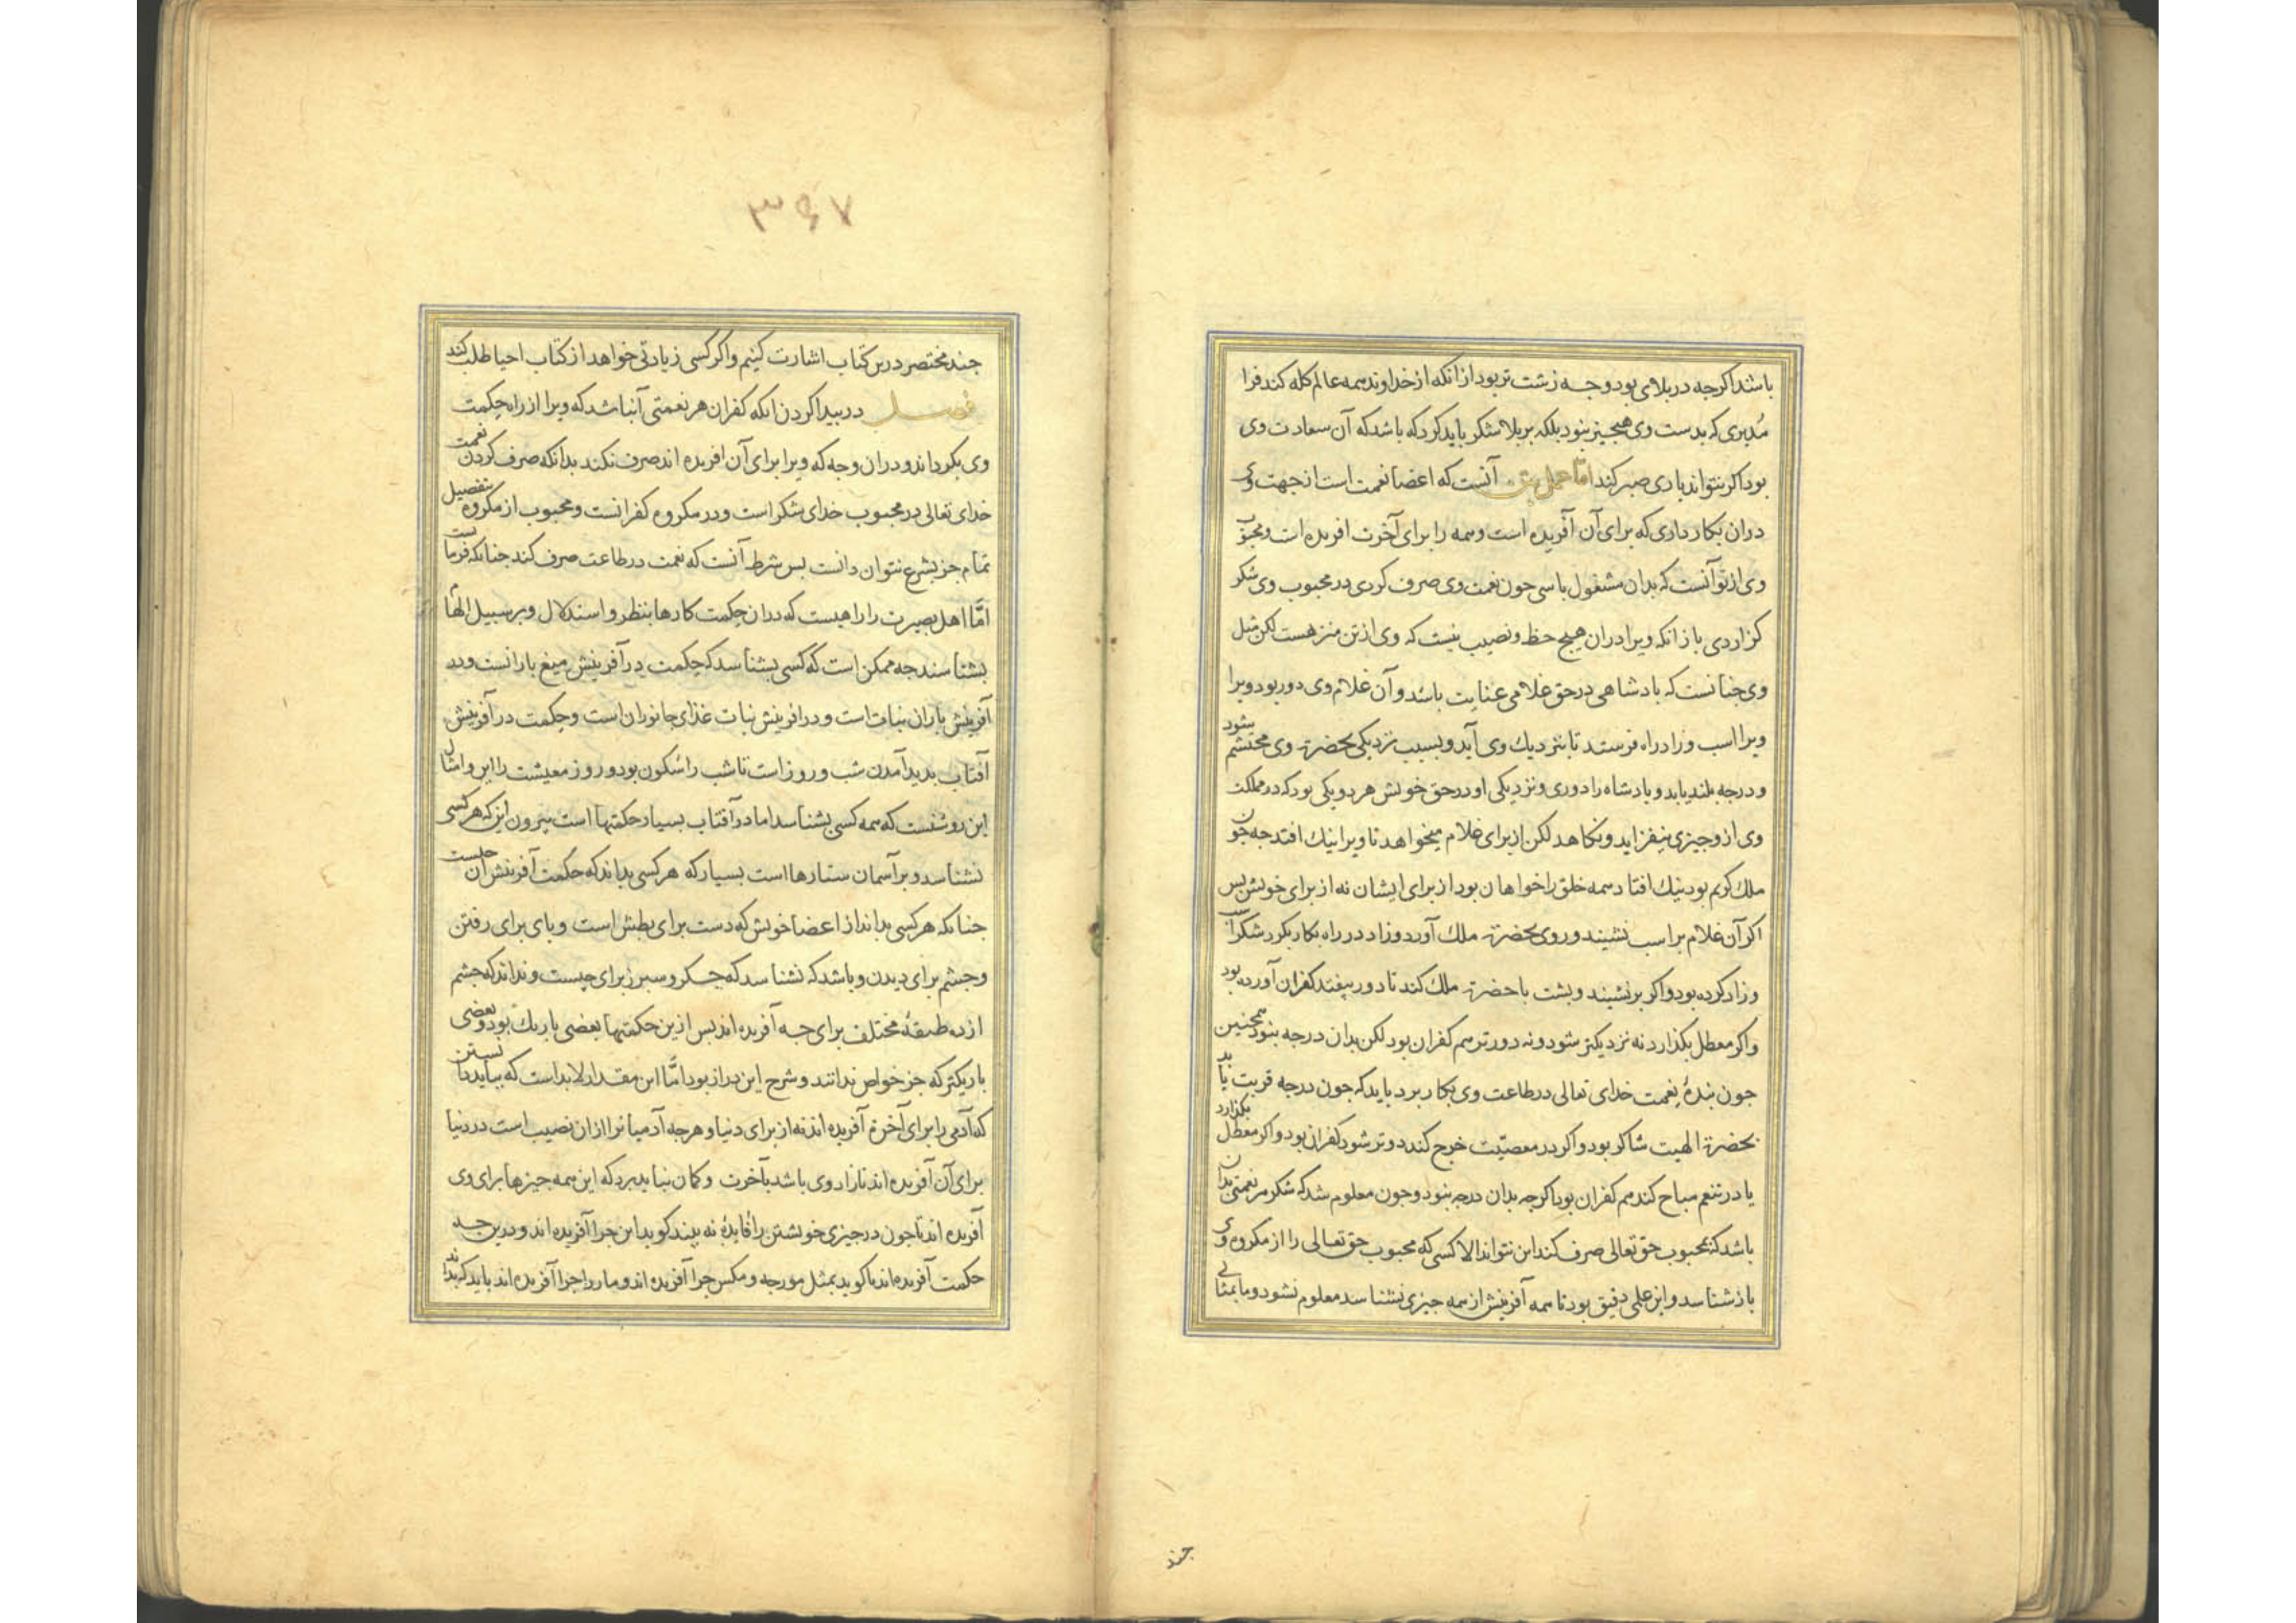 باشد اکرجه در بلای بود وجه زشت تر بود از انکه از خداوند همه عالم کله کند فرا
مُدبری که بدست وی هیچیز نبود بلکه بر بلا شکر باید کرد که باشد که آن سعادت وی
بود اکر نتواند باری صبر کند اما عمل بتن آنست که اعضا نعمت است از جهت وی
دران بکار داری که برای آن آفریده است و همه را برای آخرت افریده است و محبوب
وی از تو آنست که بدان مشغول باسی جون نعمت وی صرف کردی در محبوب وی شکر
کزاردی باز انکه ویرا دران هیچ حظ و نصیب نیست که وی از تن منزهست لکن مثل
وی جنانست که بادشاهی در حق غلامی عنایت باشد و آن غلام وی دور بود ویرا
ویرا اسب و زاد راه فرستد تا بنزدیك وی آید و بسبب نزدیکی بحضرة وی محتشم شود
و درجه بلند یابد و بادشاه را دوری و نزدیکی او در حق خویش هر دو یکی بود که در مملکت
وی ازو جیزی نیفزاید و نکاهد لکن از برای غلام میخواهد تا ویرا نیك افتد جه جون
ملك کریم بود نیك افتاد همه خلق را خواهان بود از برای ایشان نه از برای خویش بس
اکر آن غلام بر اسب نشیند و روی بحضرة ملك آورد و زاد در راه بکار برد شکر اسب
و زاد کرده بود و اکر بر نشیند و بشت با حضرة ملك کند تا دور بیفتد کفران آورده بود
و اکر معطل بکذارد نه نزدیکتر شود و نه دورتر هم کفران بود لکن بدان درجه نبود همچنین
جون بندهٔ نعمت خدای تعالی در طاعت وی بکار برد باید که جون درجه قربت یابد
بحضرة الهیت شاکر بود و اکر در معصیّت خرج کند دوتر شود کفران بود و اکر معطل بکذارد
یا در تنعم مباح کند هم کفران بود اکرجه بدان درجه نبود و جون معلوم شد که شکر هر نعمتی بدان
باشد که بمحبوب حق تعالی صرف کند این نتواند الا کسی که محبوب حق تعالی را از مکروه وی
باز شناسد و این علمی دقیق بود تا همه آفرینش از همه جیزی نشناسد معلوم نشود و ما بمثالی
جند
٣٩٧
جند مختصر درین کتاب اشارت کنیم و اکر کسی زیادتی خواهد از کتاب احیا طلب کند
فصل در بیدا کردن انکه کفران هر نعمتی آنباشد که ویرا از راه حکمت
وی بکرداند و دران وجه که ویرا برای آن افریده اند صرف نکند بدانکه صرف کردن نعمت
خدای تعالی در محبوب خدای شکر است و در مکروه کفرانست و محبوب از مکروه بتفصیل
تمام جز بشرع نتوان دانست بس شرط آنست که نعمت در طاعت صرف کند جنانکه فرما نست
امّا اهل بصیرت را راهیست که دران حکمت کارها بنظر و استدلال و بر سبیل الهام
بشناسند جه ممکن است که کسی بشناسد که حکمت در آفرینش میغ بارانست و در
آفرینش باران نبات است و در افرینش نبات غذای جانوران است و حکمت در آفرینش
آفتاب بدید آمدن شب و روز است تا شب را سکون بود و روز معیشت را این و امثال
این روشنست که همه کسی بشناسد اما در آفتاب بسیار حکمتها است بیرون این که هر کسی
نشناسد و بر آسمان ستارها است بسیار که هر کسی بداند که حکمت آفرینش آن جیست
جنانکه هر کسی بداند از اعضا خویش که دست برای بطش است و بای برای رفتن
و جشم برای دیدن و باشد که نشناسد که جکر و سبرز برای چیست و نداند که جشم
از ده طبقهٔ مختلف برای جه آفریده اند بس ازین حکمتها بعضی باریك بود و بعضی
باریکتر که جز خواص ندانند و شرح این دراز بود امّا این مقدار لابد است که بباید دانستن
که آدمی را برای آخرة آفریده اند نه از برای دنیا و هرجه آدمیانرا ازان نصیب است در دنیا
برای آن آفریده اند تا زاد وی باشد بآخرت و کمان نباید برد که این همه جیزها برای وی
آفریده اند تا جون در جیزی خویشتن را فایدهٔ نه بیند کوید این جرا آفریده اند و درین جه
حکمت آفریده اند تا کوید بمثل مورجه و مکس جرا آفریده اند و مار را جرا آفریده اند باید که بداند